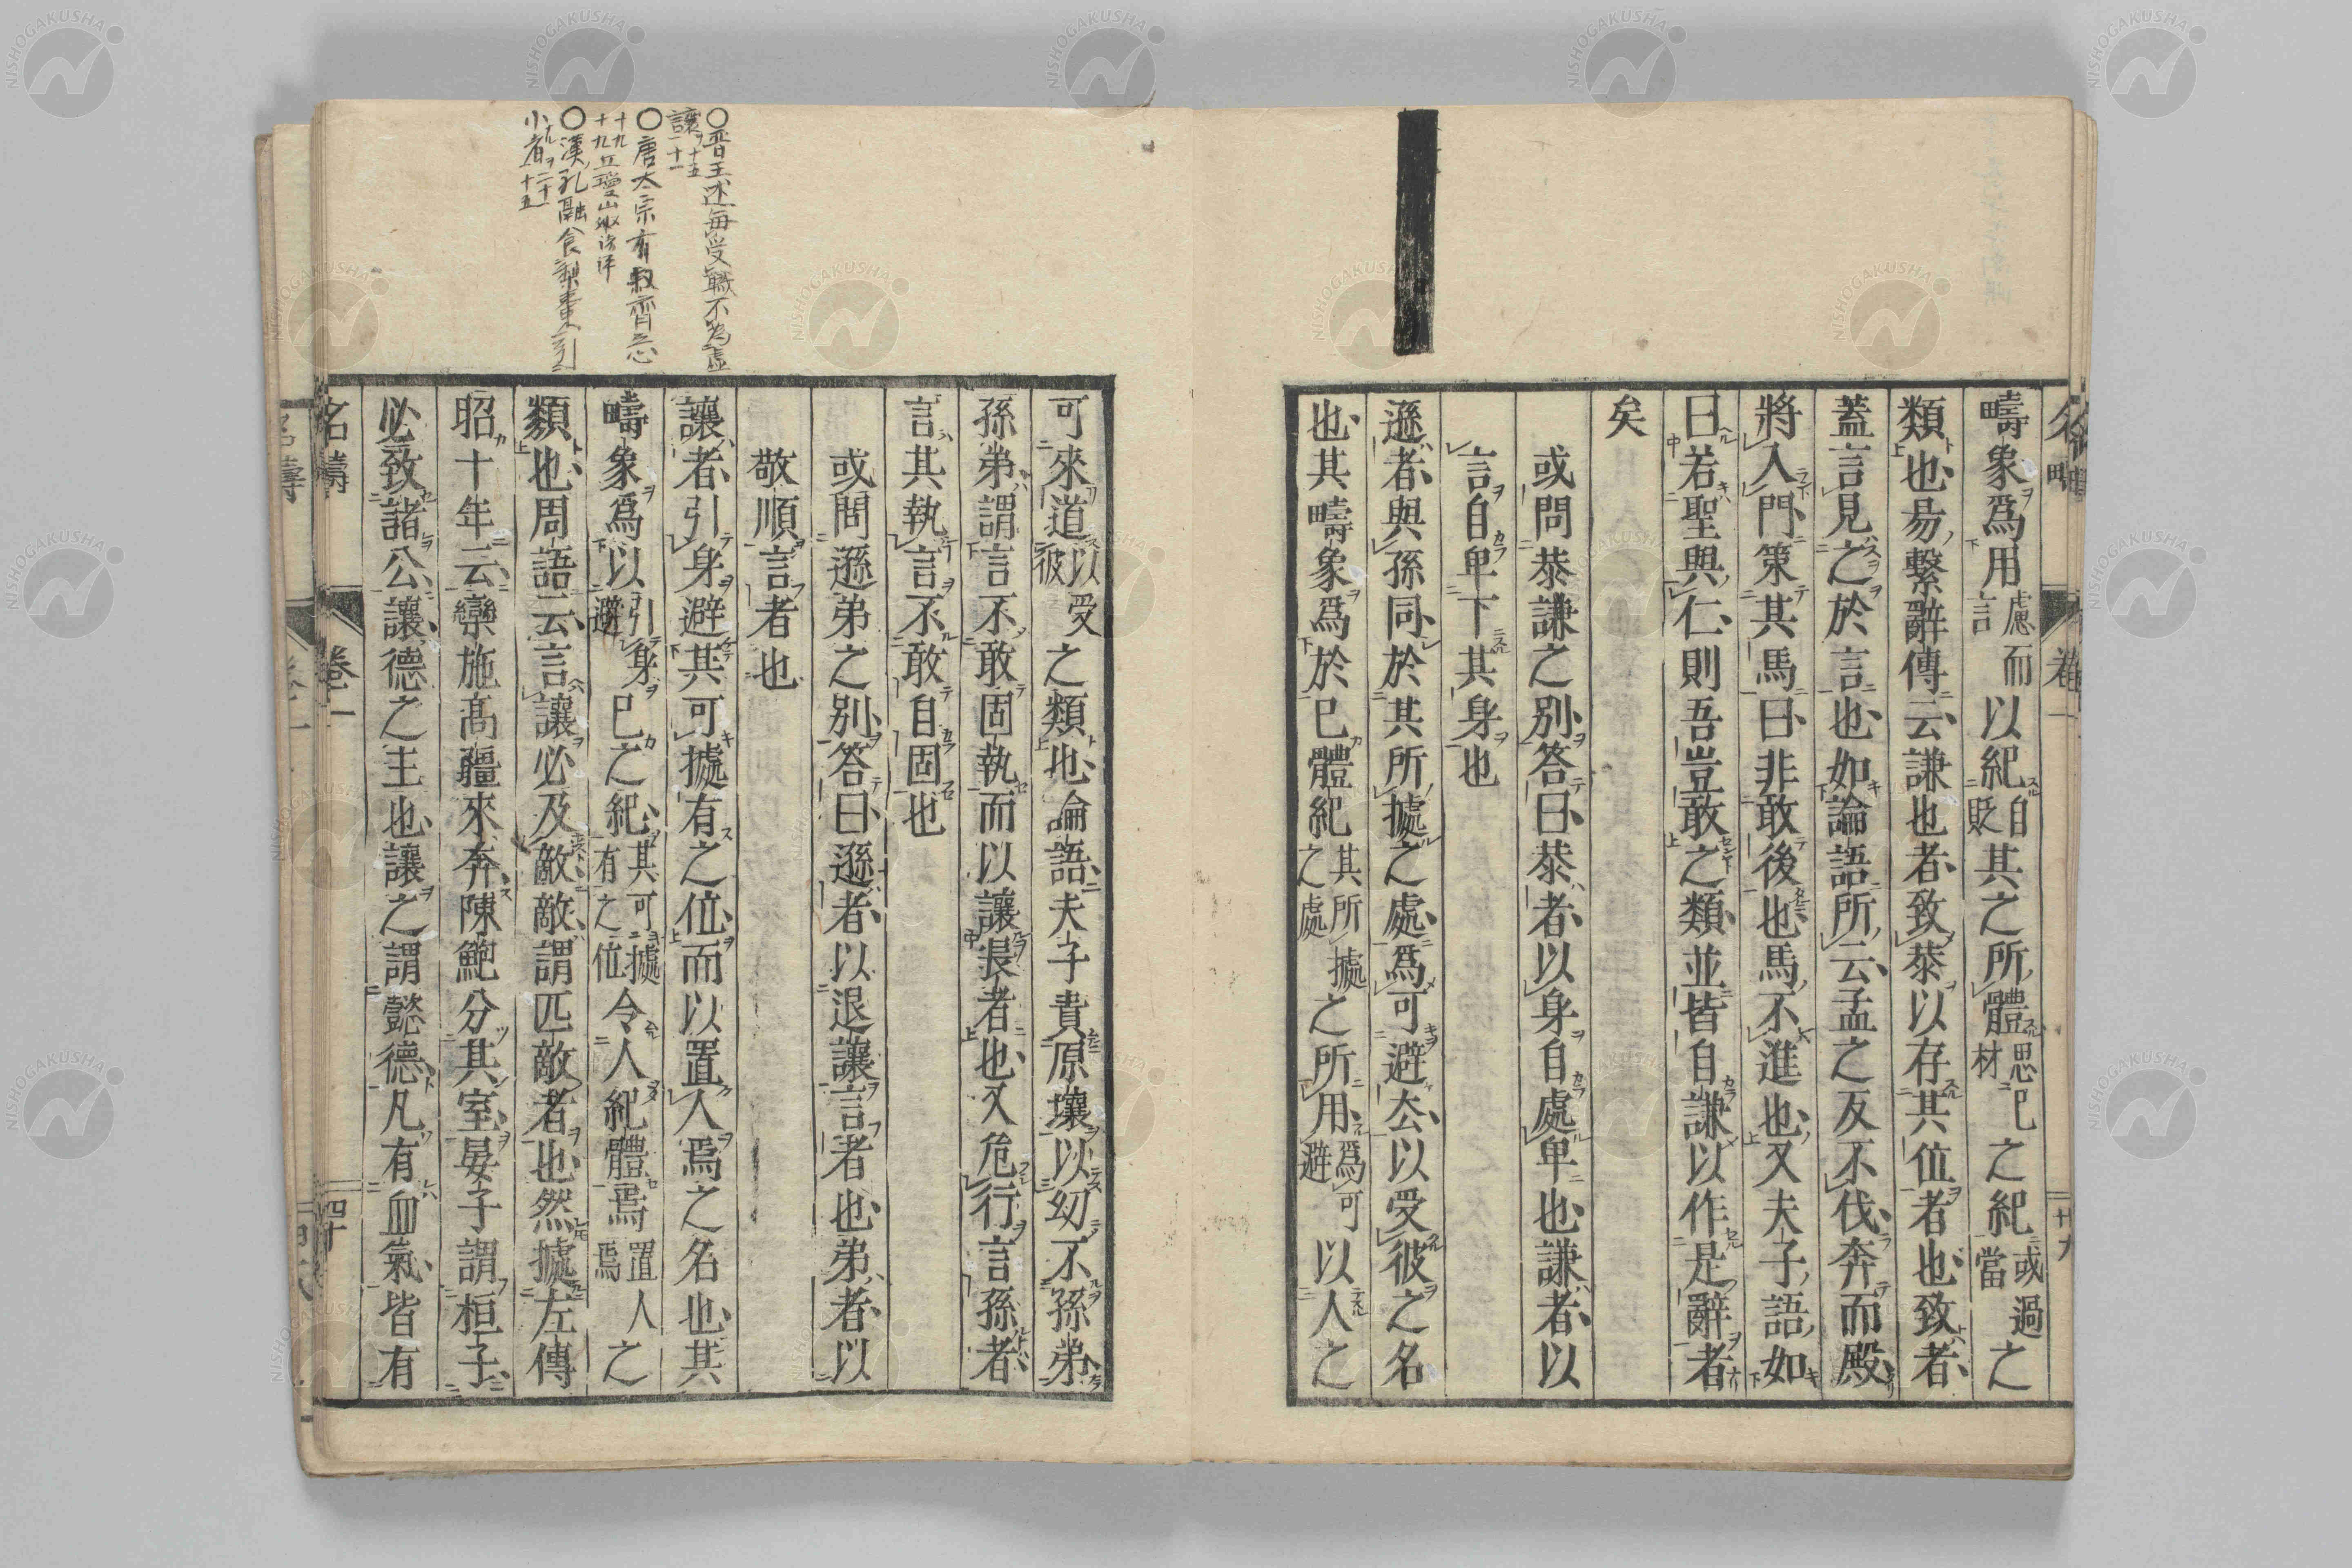 疇象爲用慮而言以紀自貶其之所體思己之材紀或過當之
類也易繫辭傳云謙也者致恭以存其位者也致者
蓋言見之於言也如論語所云孟之反不伐奔而殿
將入門策其馬曰非敢後也馬不進也又夫子語如
曰若聖與仁則吾豈敢之類並皆自謙以作是辭者
矣
或問恭謙之別答曰恭者以身自處卑也謙者以
言自卑下其身也
遜者與孫同於其所據之處爲可避去以受彼之名
也其疇象爲於己體紀其所據之處之所用爲可避以人之
可來道以受彼之類也論語夫子責原壤以幼不孫弟
孫弟謂言不敢固執而以讓長者也又危行言孫者
言其執言不敢自固也
或問遜弟之別答曰遜者以退讓言者也弟者以
敬順言者也
讓者引身避其可據有之位而以置人焉之名也其
疇象爲以引身避己之紀其可據有之位令人紀體焉置人焉之
類也周語云言讓必及敵敵謂匹敵者也然據左傳
昭十年云欒施高疆來奔陳鮑分其室晏子謂桓子
必致諸公讓德之主也讓之謂懿德凡有血氣皆有
名疇
卷一
四十
〇晋王述每受職不為虚
讓ヲ十五
二十一
〇唐太宗有
十九
〇漢孔融食梨棗引
小者ヲ二十
一十五
NISHOGAKUSHA